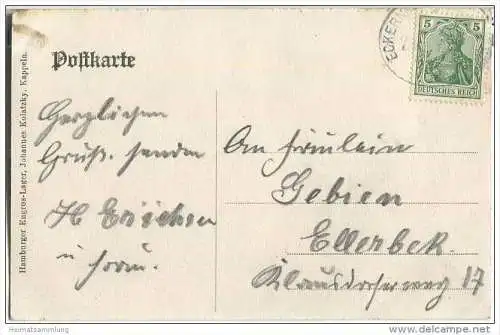 Postkarte
ECKERN
5 5
DEUTSCHES REICH
Herzlichen
Gruß. senden
H Erichsen
u Frau.
An Fräulein
Gebien
Ellerbek.
Klausdorferweg 17
Hamburger Engros-Lager, Johannes Kolatzky, Kappeln.
Heimatsammlung
www.delcampe.net